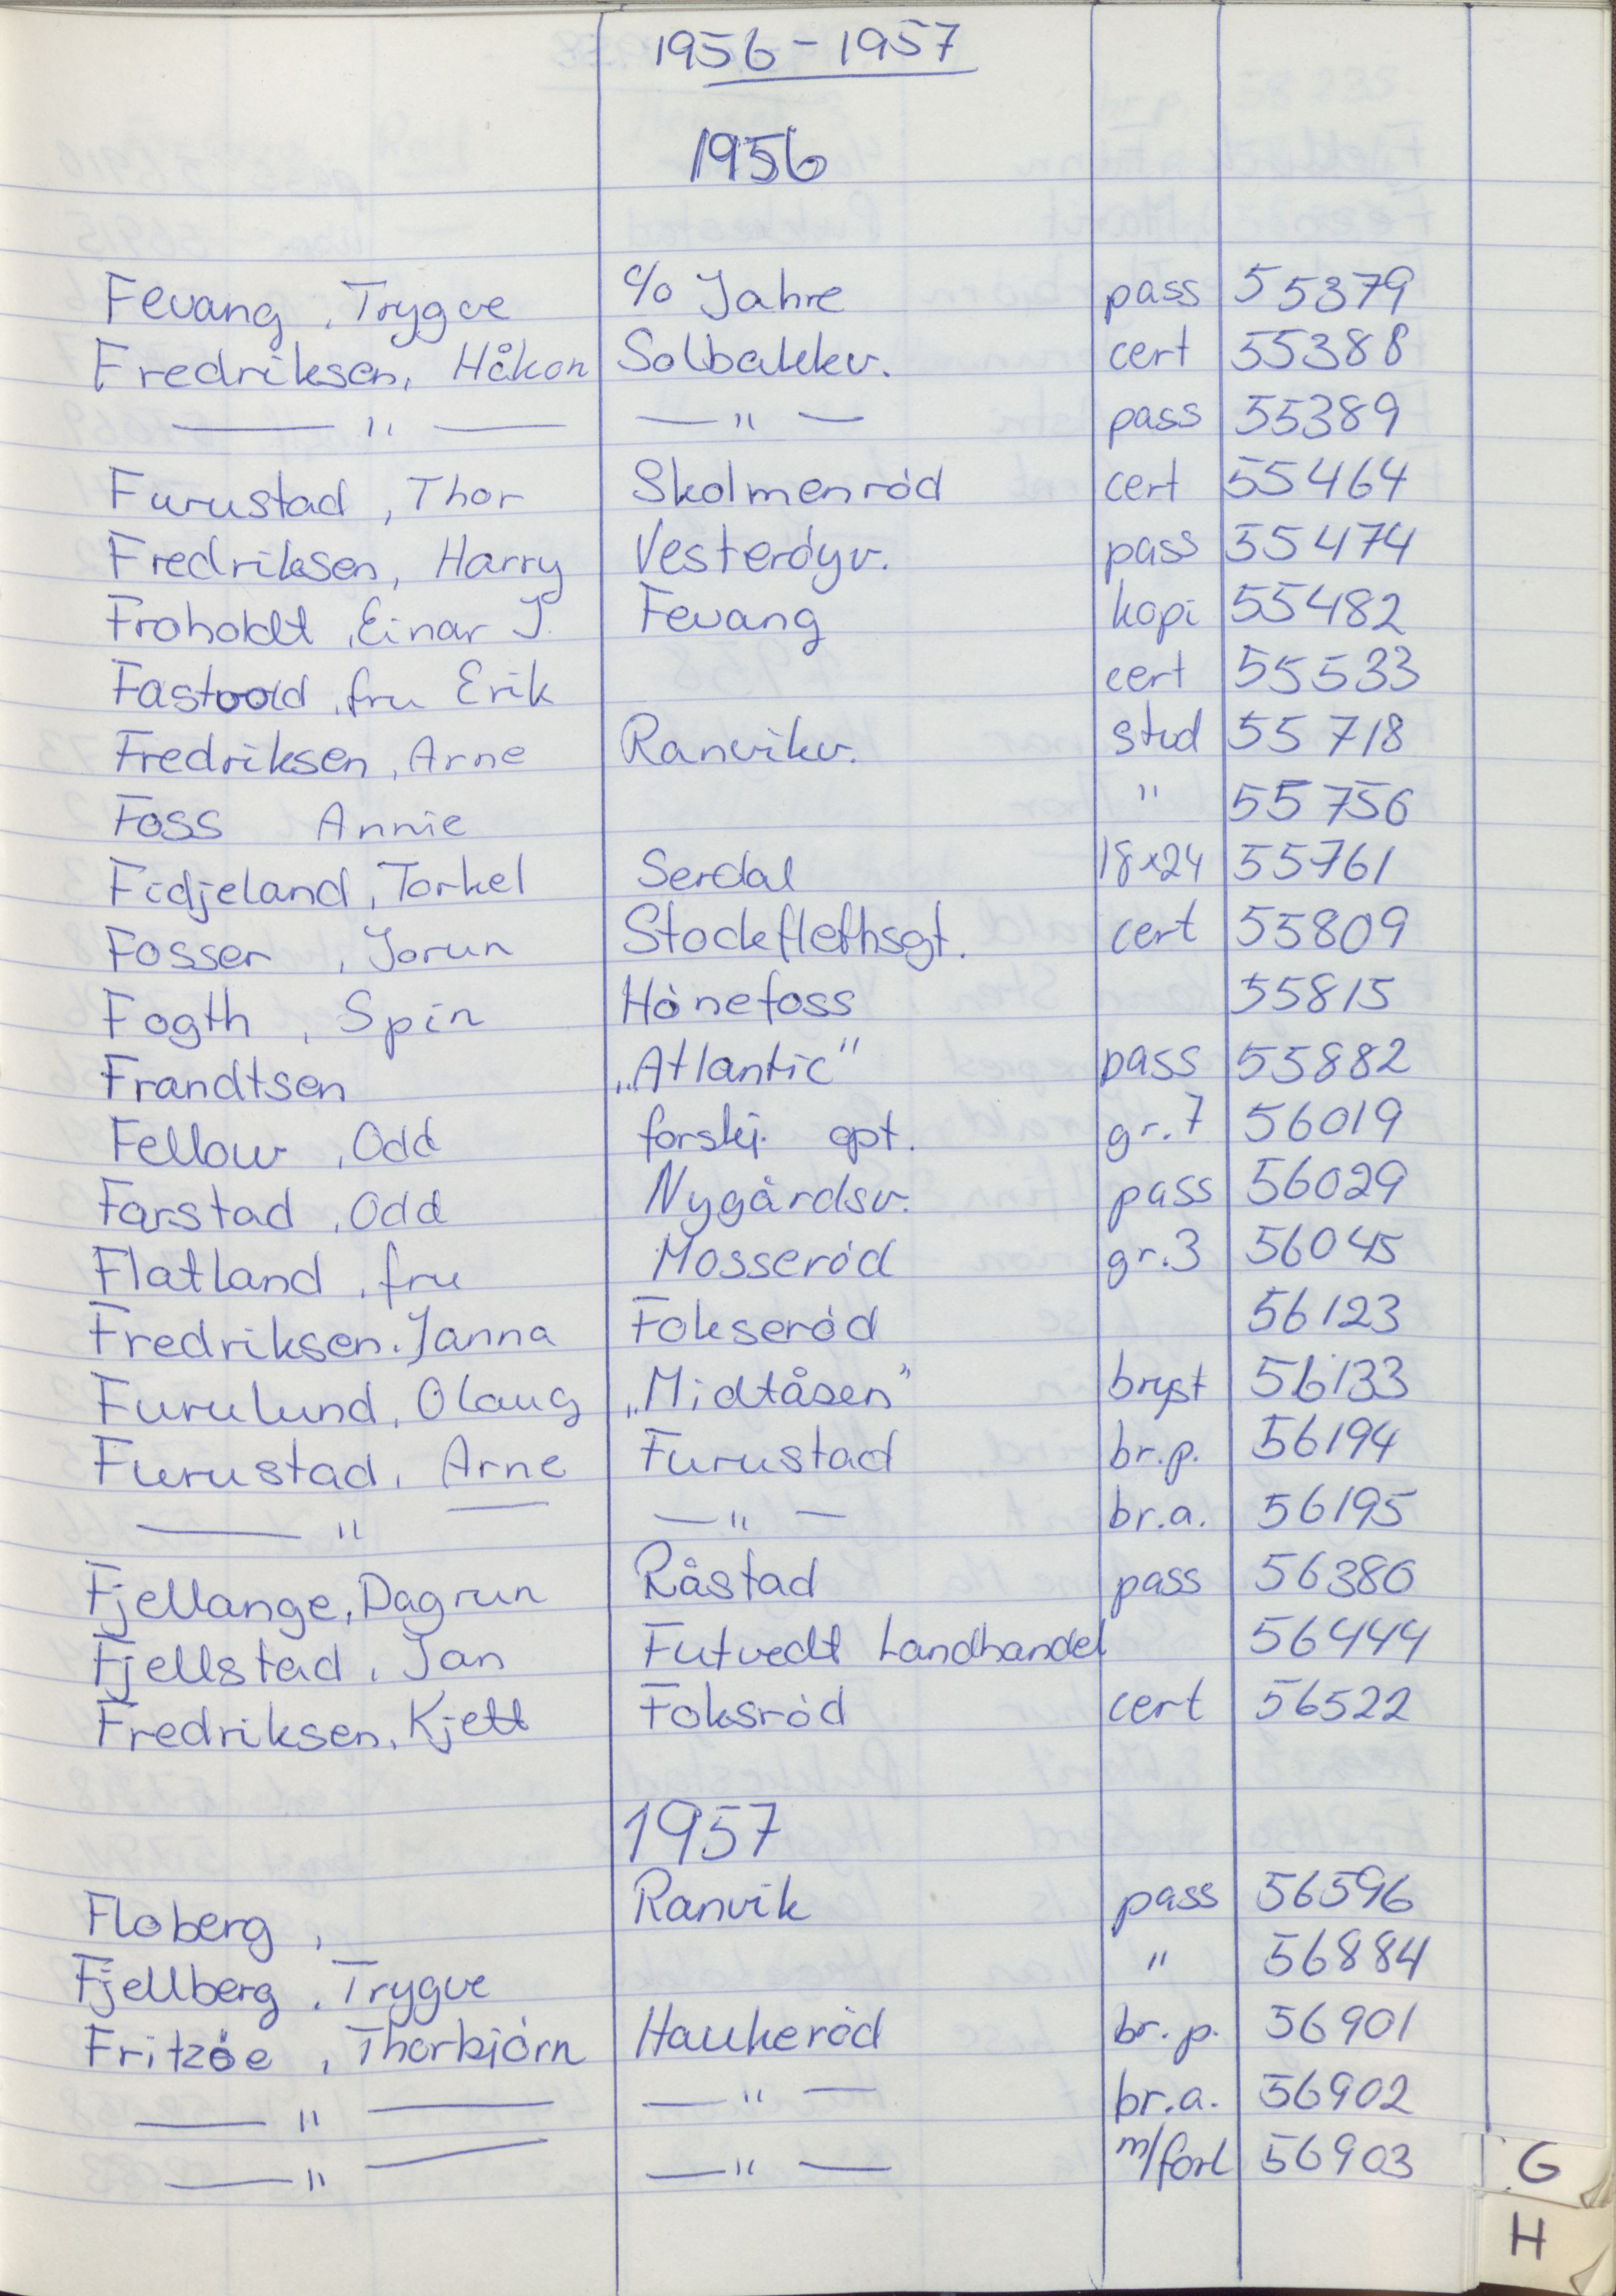 1956-1957
1956
Fevang, Trygve c/o Jahre pass 55379
Fredriksen, Håkon Solbakkv. cert 55388
— " — — " — pass 55389
Furustad, Thor Skolmenröd cert 55464
Fredriksen, Harry Vesteröyv. pass 55474
Froholdt, Einar J. Fevang kopi 55482
Fastvold, fru Erik cert 55533
Fredriksen, Arne Ranvikv. stud 55718
Foss Annie " 55756
Fidjeland, Torkel Serdal 18x24 55761
Fosser, Jorun Stockflethsgt. cert 55809
Fogth, Spin Hönefoss 55815
Frandtsen "Atlantic" pass 55882
Fellow, Odd forskj. opt. gr.7 56019
Farstad, Odd Nygårdsv. pass 56029
Flatland, fru Mosseröd gr.3 56045
Fredriksen. Janna Fokseröd 56123
Furulund, Olaug "Midtåsen" bryst 56133
Furustad, Arne Furustad br.p. 56194
— " — — " — br.a. 56195
Fjellange, Dagrun Råstad pass 56386
Fjellstad, Jan Futvedt Landhandel 56444
Fredriksen, Kjett Foksröd cert 56522
1957
Floberg, Ranvik pass 56596
Fjellberg, Trygve " 56884
Fritzöe, Thorbjörn Haukeröd br.p. 56901
— " — — " — br.a. 56902
— " — — " — m/forl 56903
G
H